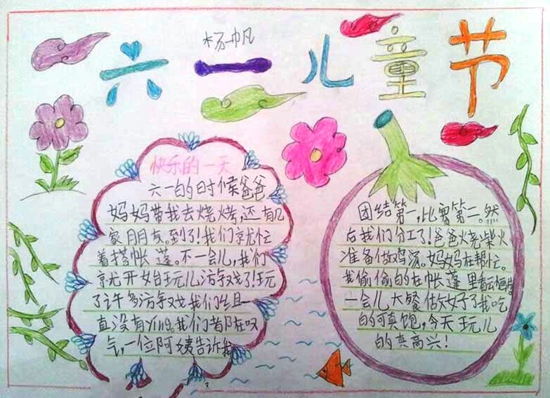 杨帆
六一儿童节
快乐的一天
六一的时候爸爸
妈妈带我去烧烤还有几
家朋友。到了!我们就忙
着搭帐蓬。不一会儿,我们
就开始玩儿游戏了!玩
了许多游戏我们
真没有
气,一位阿姨告诉我
团结第一,比赛第二。然
后我们分工了!爸爸烧柴火
准备做鸡汤。妈妈在帮忙。
我偷偷的在帐蓬里看
一会儿大餐做好了我吃
的可真饱,今天玩儿
的真高兴!